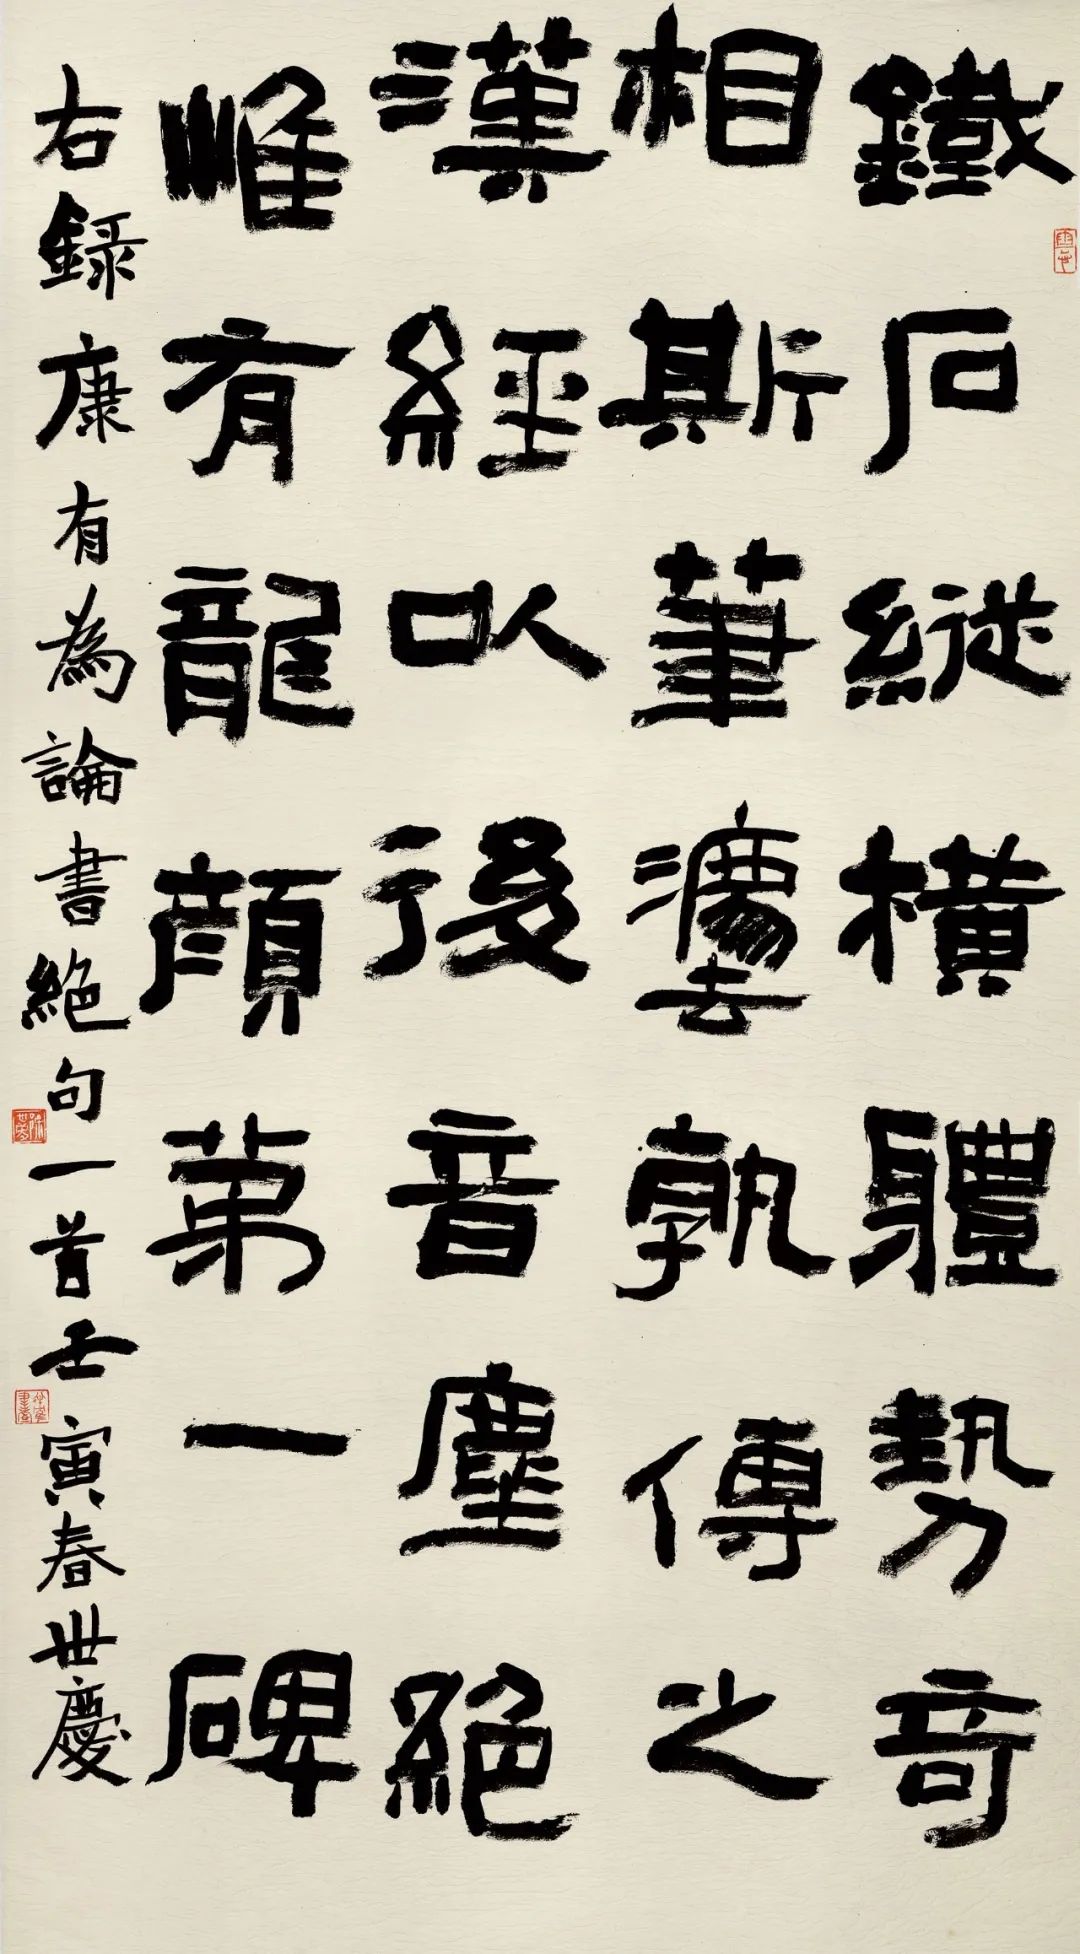 鐵石縱橫體勢奇
相斯筆灋孰傳之
漢經以後音塵絕
惟有龍顏第一碑
右録康有為論書絕句一首壬寅春世慶